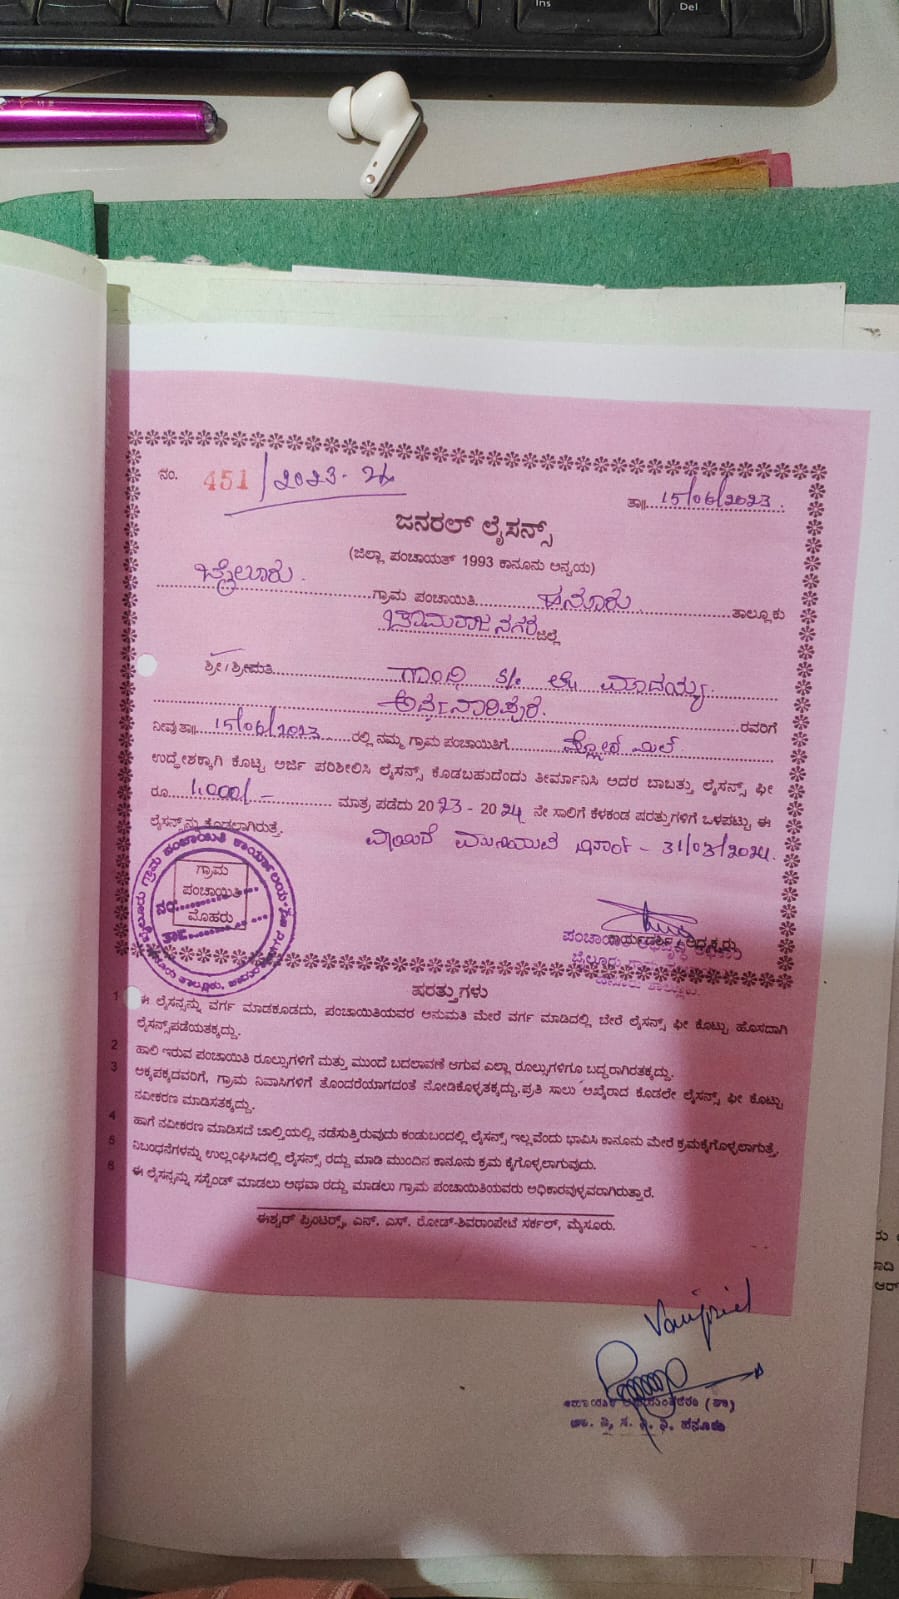 Ins
Del
ನಂ. 451/2023-24
ತಾ॥ 15/06/2023
ಜನರಲ್ ಲೈಸನ್ಸ್
(ಜಿಲ್ಲಾ ಪಂಚಾಯತ್ 1993 ಕಾನೂನು ಅನ್ವಯ)
ಬೈಲೂರು. ಗ್ರಾಮ ಪಂಚಾಯಿತಿ ಹನೂರು ತಾಲ್ಲೂಕು
ಚಾಮರಾಜನಗರ ಜಿಲ್ಲೆ
ಶ್ರೀ/ಶ್ರೀಮತಿ ಗಾಂಧಿ S/o ಲೇ ಮಾದಯ್ಯ
ಅರ್ಧನಾರಿಪುರ. ರವರಿಗೆ
ನೀವು ತಾ॥ 15/06/2023 ರಲ್ಲಿ ನಮ್ಮ ಗ್ರಾಮ ಪಂಚಾಯಿತಿಗೆ ಮಿಲ್
ಉದ್ಧೇಶಕ್ಕಾಗಿ ಕೊಟ್ಟ ಅರ್ಜಿ ಪರಿಶೀಲಿಸಿ ಲೈಸನ್ಸ್ ಕೊಡಬಹುದೆಂದು ತೀರ್ಮಾನಿಸಿ ಅದರ ಬಾಬತ್ತು ಲೈಸನ್ಸ್ ಫೀ
ರೂ. 1,000/- ಮಾತ್ರ ಪಡೆದು 2023 - 2024 ನೇ ಸಾಲಿಗೆ ಕೆಳಕಂಡ ಪರತ್ತುಗಳಿಗೆ ಒಳಪಟ್ಟು ಈ
ಲೈಸನ್ಸ್‌ನ್ನು ಕೊಡಲಾಗಿರುತ್ತೆ.
ವಾಯಿದೆ ಮುಗಿಯುವ ದಿನಾಂಕ - 31/03/2024
ಗ್ರಾಮ
ಪಂಚಾಯಿತಿ
ನಂ.
ಮೊಹರು
ತಾ॥
ಷರತ್ತುಗಳು
1 ಈ ಲೈಸನ್ಸನ್ನು ವರ್ಗ ಮಾಡಕೂಡದು, ಪಂಚಾಯಿತಿಯವರ ಅನುಮತಿ ಮೇರೆ ವರ್ಗ ಮಾಡಿದಲ್ಲಿ ಬೇರೆ ಲೈಸನ್ಸ್ ಫೀ ಕೊಟ್ಟು ಹೊಸದಾಗಿ
ಲೈಸನ್ಸ್‌ಪಡೆಯತಕ್ಕದ್ದು.
2 ಹಾಲಿ ಇರುವ ಪಂಚಾಯಿತಿ ರೂಲ್ಸುಗಳಿಗೆ ಮತ್ತು ಮುಂದೆ ಬದಲಾವಣೆ ಆಗುವ ಎಲ್ಲಾ ರೂಲ್ಸುಗಳಿಗೂ ಬದ್ಧರಾಗಿರತಕ್ಕದ್ದು.
3 ಅಕ್ಕಪಕ್ಕದವರಿಗೆ, ಗ್ರಾಮ ನಿವಾಸಿಗಳಿಗೆ ತೊಂದರೆಯಾಗದಂತೆ ನೋಡಿಕೊಳ್ಳತಕ್ಕದ್ದು. ಪ್ರತಿ ಸಾಲು ಅಖೈರಾದ ಕೂಡಲೇ ಲೈಸನ್ಸ್ ಫೀ ಕೊಟ್ಟು
ನವೀಕರಣ ಮಾಡಿಸತಕ್ಕದ್ದು.
4 ಹಾಗೆ ನವೀಕರಣ ಮಾಡಿಸದೆ ಚಾಲ್ತಿಯಲ್ಲಿ ನಡೆಸುತ್ತಿರುವುದು ಕಂಡುಬಂದಲ್ಲಿ ಲೈಸನ್ಸ್ ಇಲ್ಲವೆಂದು ಭಾವಿಸಿ ಕಾನೂನು ಮೇರೆ ಕ್ರಮಕೈಗೊಳ್ಳಲಾಗುತ್ತೆ.
5 ನಿಬಂಧನೆಗಳನ್ನು ಉಲ್ಲಂಘಿಸಿದಲ್ಲಿ ಲೈಸನ್ಸ್ ರದ್ದು ಮಾಡಿ ಮುಂದಿನ ಕಾನೂನು ಕ್ರಮ ಕೈಗೊಳ್ಳಲಾಗುವುದು.
6 ಈ ಲೈಸನ್ಸನ್ನು ಸಸ್ಪೆಂಡ್ ಮಾಡಲು ಅಥವಾ ರದ್ದು ಮಾಡಲು ಗ್ರಾಮ ಪಂಚಾಯಿತಿಯವರು ಅಧಿಕಾರವುಳ್ಳವರಾಗಿರುತ್ತಾರೆ.
ಈಶ್ವರ್ ಪ್ರಿಂಟರ್ಸ್, ಎನ್. ಎಸ್. ರೋಡ್-ಶಿವರಾಂಪೇಟೆ ಸರ್ಕಲ್, ಮೈಸೂರು.